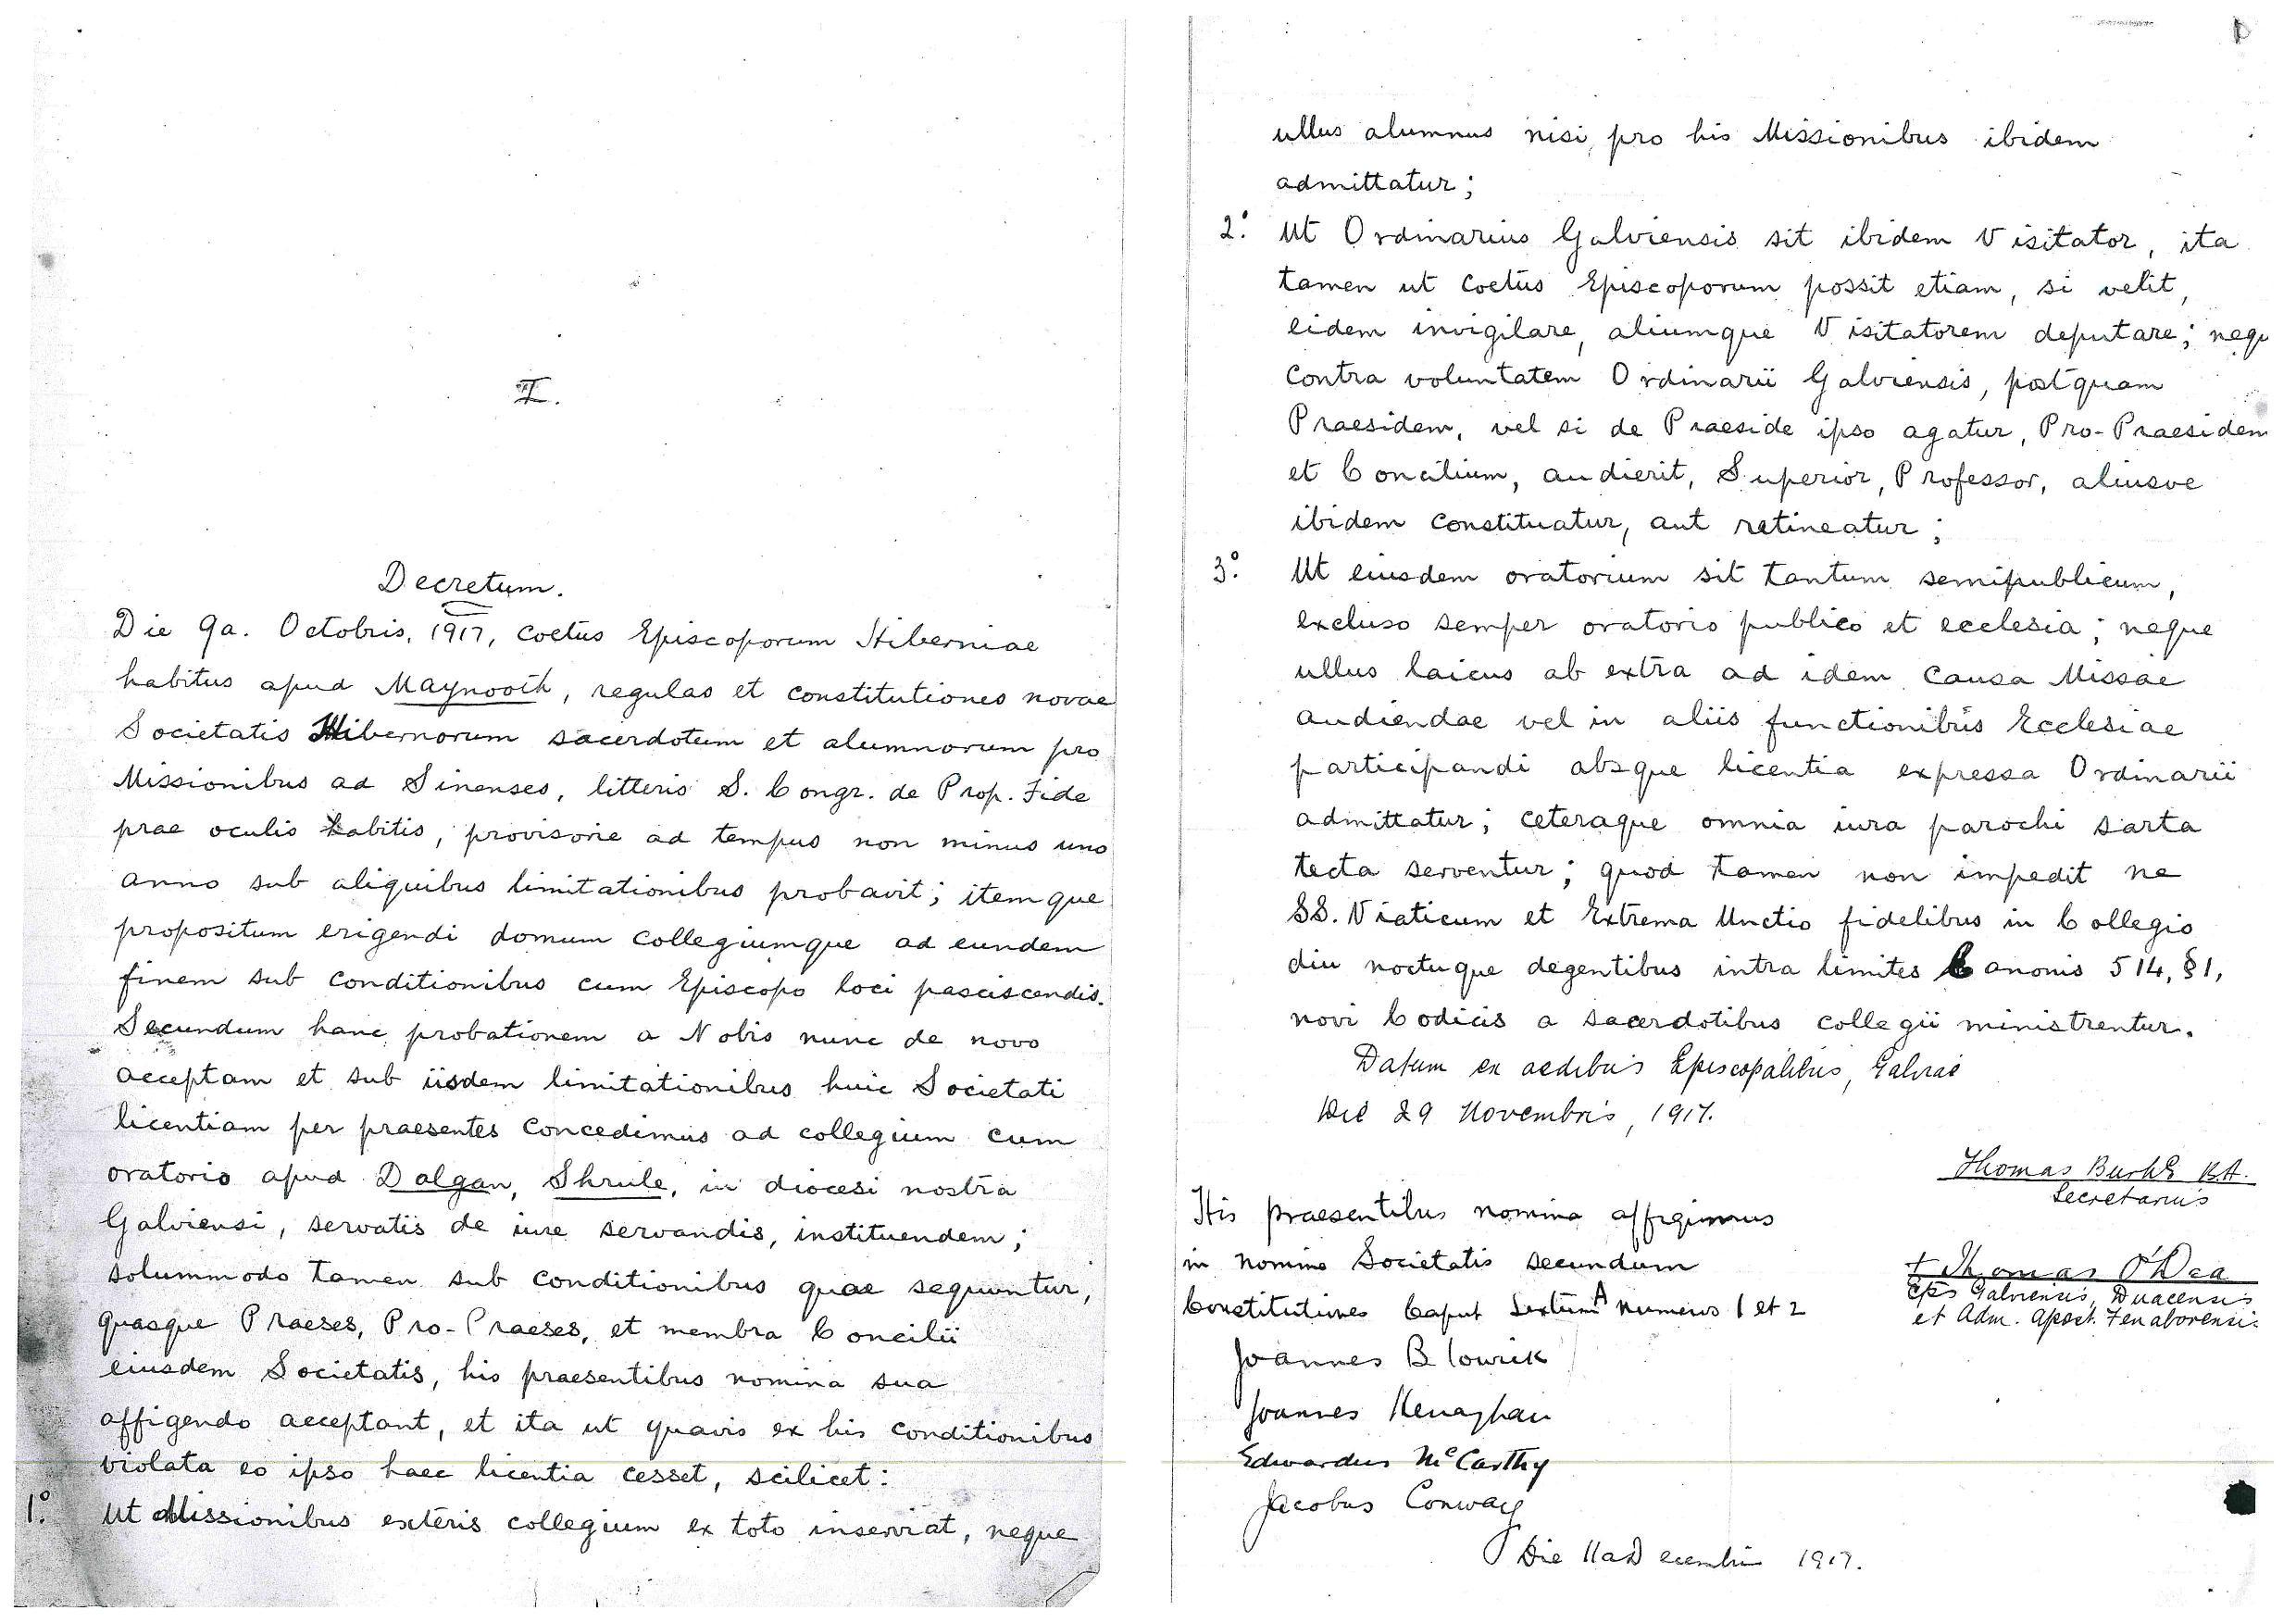 I.
Decretum.
Die 9a. Octobris, 1917, coetus Episcoporum Hiberniae
habitus apud Maynooth, regulas et constitutiones novae
Societatis Hibernorum sacerdotum et alumnorum pro
Missionibus ad Sinenses, litteris S. Congr. de Prop. Fide
prae oculis habitis, provisorie ad tempus non minus uno
anno sub aliquibus limitationibus probavit; itemque
propositum erigendi domum collegiumque ad eundem
finem sub conditionibus cum Episcopo loci pasciscendis.
Secundum hanc probationem a Nobis nunc de novo
acceptam et sub iisdem limitationibus huic Societati
licentiam per praesentes concedimus ad collegium cum
oratorio apud Dalgan, Shrule, in diocesi nostra
Galviensi, servatis de iure servandis, instituendem;
solummodo tamen sub conditionibus quae sequuntur,
quasque Praeses, Pro-Praeses, et membra Concilii
eiusdem Societatis, his praesentibus nomina sua
affigendo acceptant, et ita ut quavis ex his conditionibus
violata eo ipso haec licentia cesset, scilicet:
1.° Ut Missionibus exteris collegium ex toto inserviat, neque
ullus alumnus nisi pro his Missionibus ibidem
admittatur;
2.° Ut Ordinarius Galviensis sit ibidem Visitator, ita
tamen ut coetus Episcoporum possit etiam, si velit,
eidem invigilare, aliumque Visitatorem deputare; nequ
contra voluntatem Ordinarii Galviensis, postquam
Praesidem, vel si de Praeside ipso agatur, Pro-Praesidem
et Concilium, audierit, Superior, Professor, aliusve
ibidem constituatur, aut retineatur;
3.° Ut eiusdem oratorium sit tantum semipublicum,
excluso semper oratorio publico et ecclesia; neque
ullus laicus ab extra ad idem causa Missae
audiendae vel in aliis functionibus Ecclesiae
participandi absque licentia expressa Ordinarii
admittatur; ceteraque omnia iura parochi sarta
tecta serventur; quod tamen non impedit ne
SS. Viaticum et Extrema Unctio fidelibus in Collegio
diu noctuque degentibus intra limites Canonis 514, §1,
novi Codicis a sacerdotibus collegii ministrentur.
Datum ex aedibus Episcopalibus, Galviae
Die 29 Novembris, 1917.
Thomas Burke B.A.
Secretarius
† Thomas O'Dea
Eps Galviensis, Duacensis
et Adm. Apost. Fenaborensis
His praesentibus nomina affigimus
in nomine Societatis secundum
Constitutiones Caput Sextum A numeros 1 et 2
Joannes Blowick
Joannes Henaghan
Edwardus McCarthy
Jacobus Conway
Die 11a Decembris 1917.